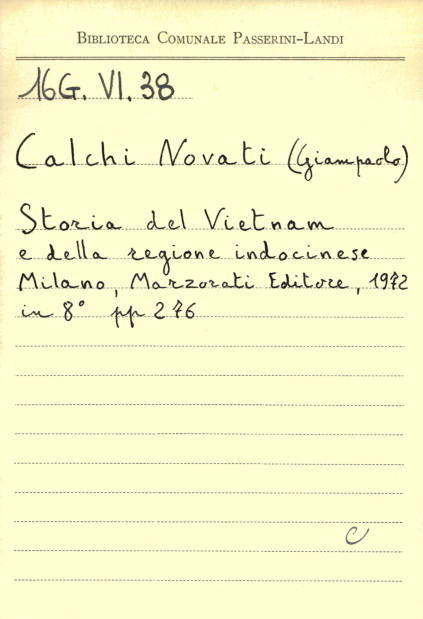 BIBLIOTECA COMUNALE PASSERINI-LANDI
16G. VI. 38
Calchi Novati (Giampaolo)
Storia del Vietnam
e della regione indocinese
Milano, Marzorati Editore, 1972
in 8° pp 276
C